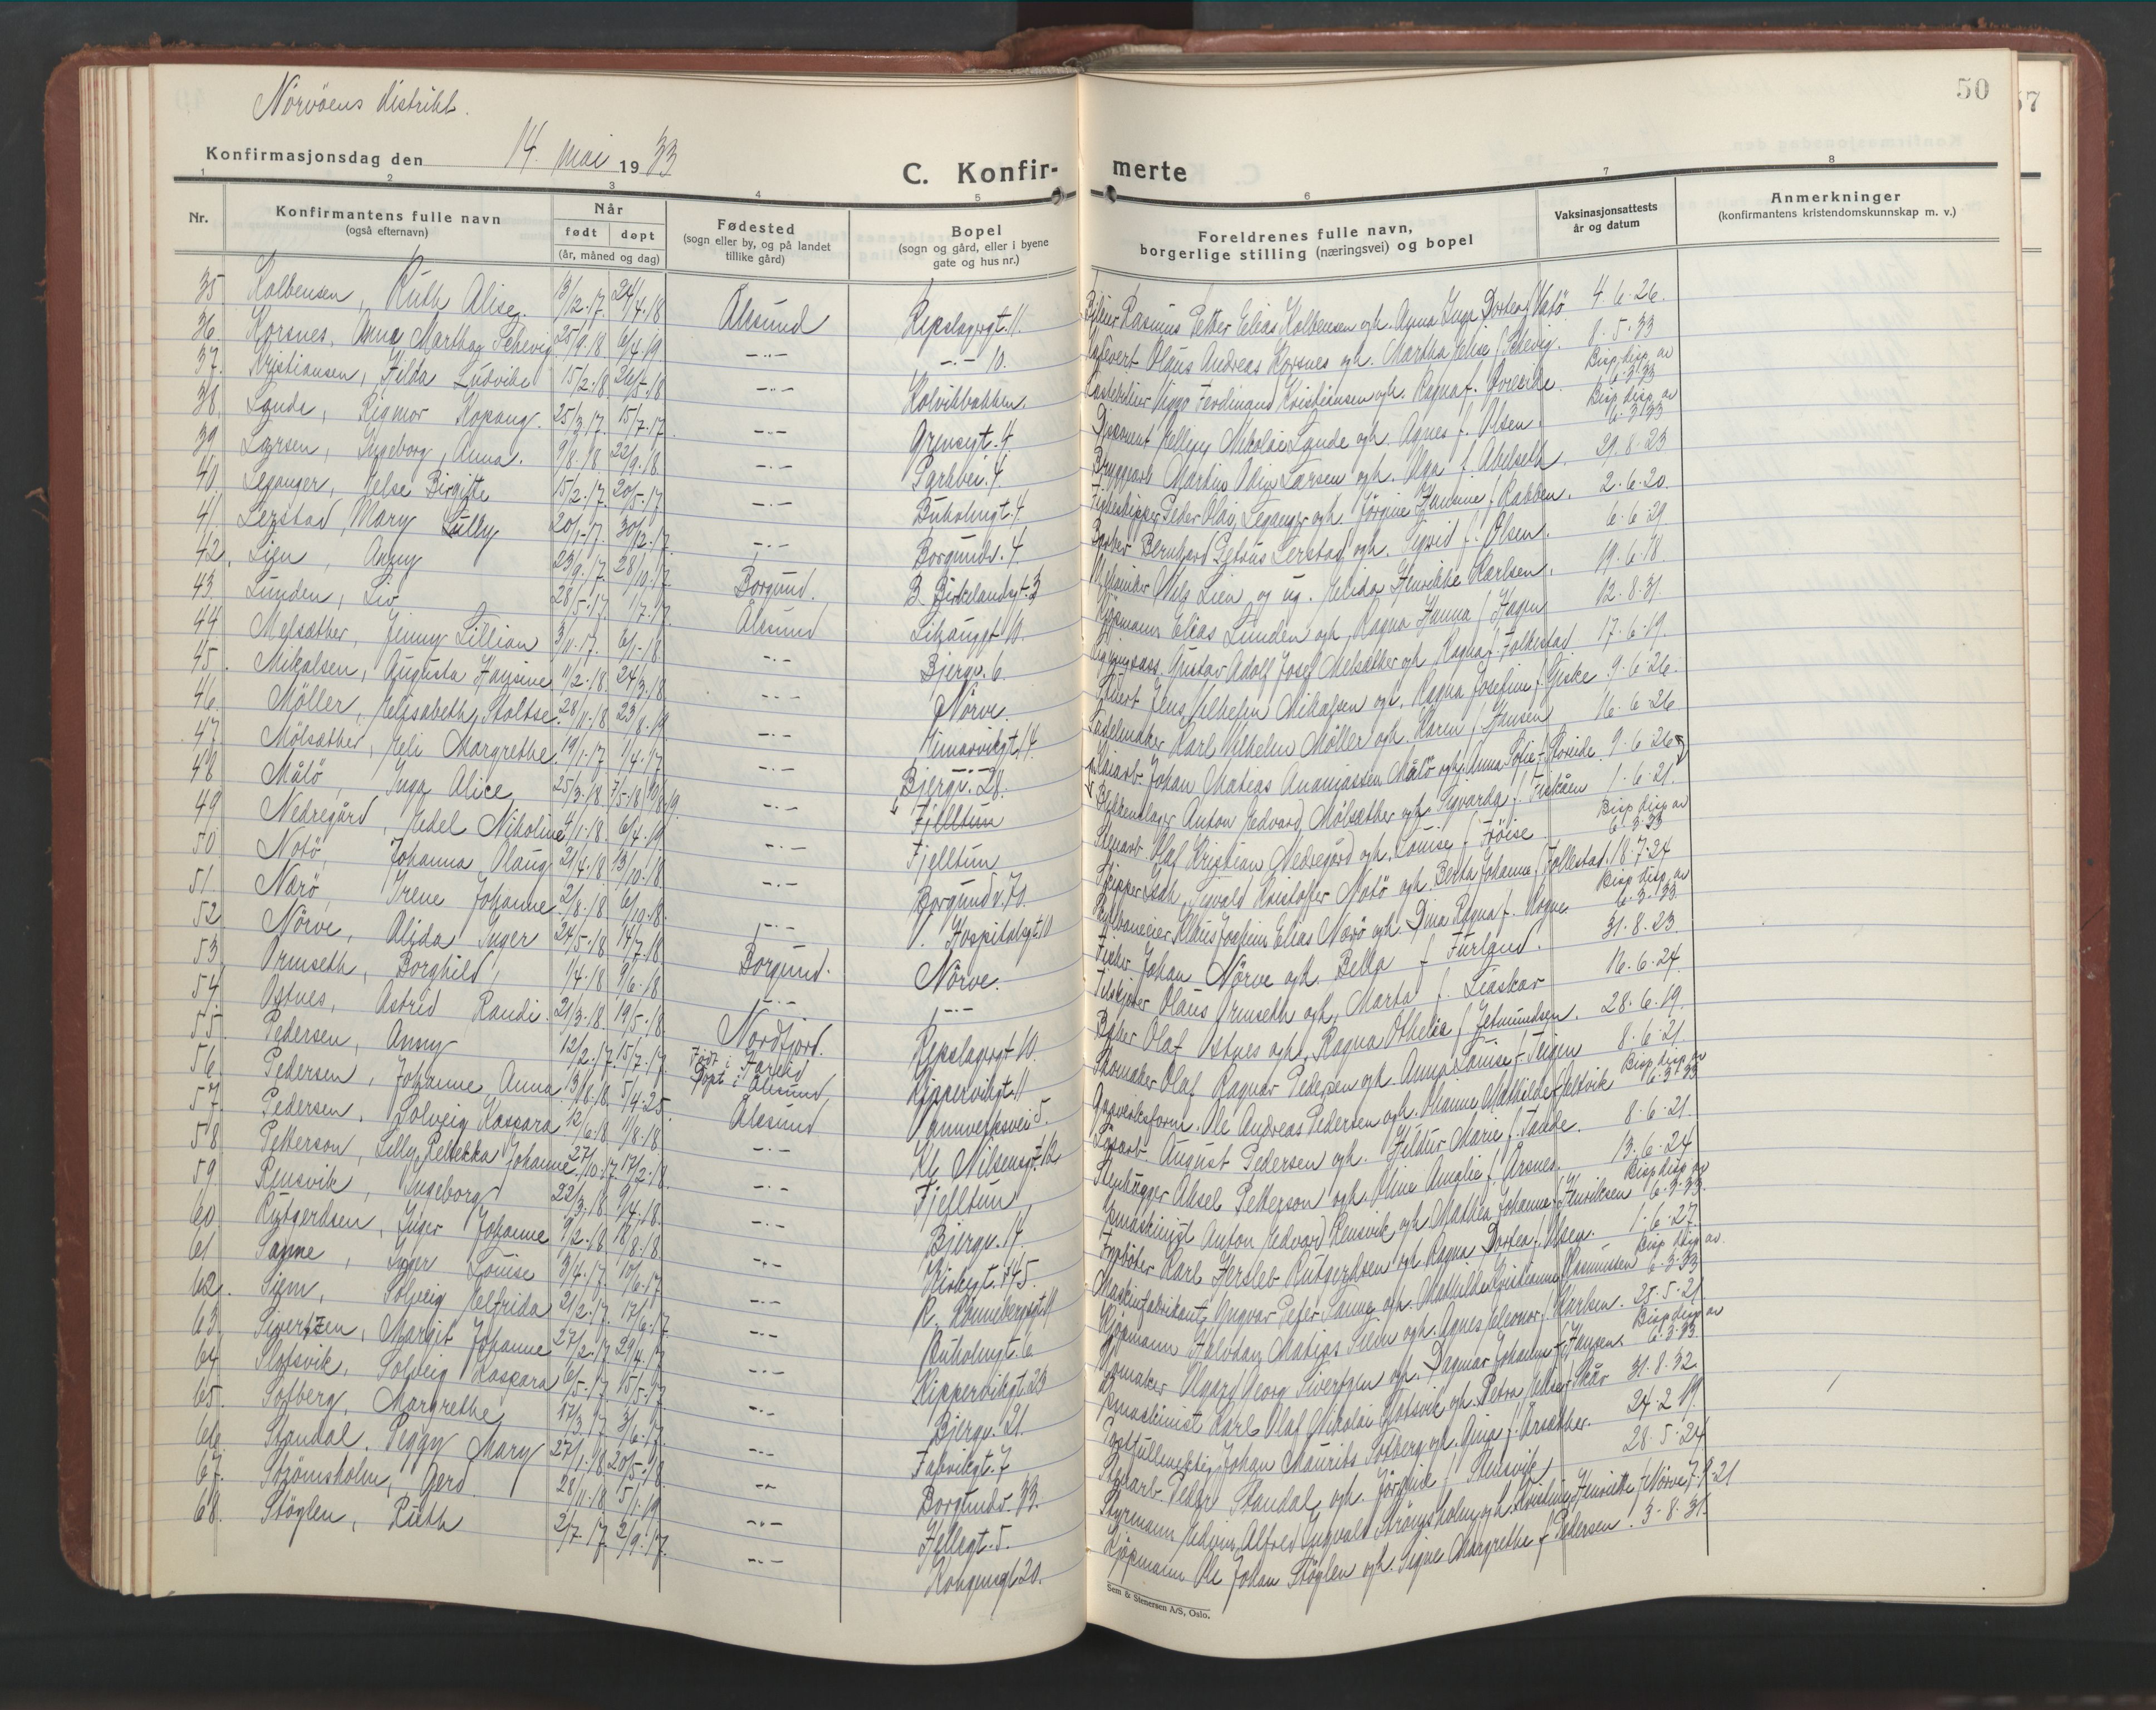 Nørvøens distrikt.
50
57
Konfirmasjonsdag den 14. mai 1933
C. Konfir- merte
1 2 3 4 5 6 7 8
Nr.
Konfirmantens fulle navn
(også efternavn)
Når
født døpt
(år, måned og dag)
Fødested
(sogn eller by, og på landet
tillike gård)
Bopel
(sogn og gård, eller i byene
gate og hus nr.)
Foreldrenes fulle navn,
borgerlige stilling (næringsvei) og bopel
Vaksinasjonsattests
år og datum
Anmerkninger
(konfirmantens kristendomskunnskap m. v.)
35 Kolbensen, Ruth Alise. 13/12.17. 24/4.18 Ålesund Repslagergt. 11. Rasmus Petter Elias Kolbensen og h. Anna Inga Dortea f. Vatø 4.6.26.
36. Korsnes, Anna Martha Schevig 25/9.18 6/4.19 -.- -.- 10. Olaus Andreas Korsnes og h. Martha Elise f. Schevig. 8.5.33
37. Kristiansen, Hilda Ludvikke 15/2.18. 26/5.18 -.- Kolvikbakken. Viggo Ferdinand Kristiansen og h. Ragna f. Bisp. disp. av 6.3.33
38. Lande, Rigmor Kopang. 25/3.17. 15/7.17. -.- Grensegt. 4. Nikolai Lande og h. Agnes f. Olsen. Bisp. disp. av 6.3.33
39 Larsen, Ingeborg, Anna. 9/8.18. 22/9.18. -.- Parkvei. 4. Martin Larsen og h. Olga f. 29.8.23
40. Leganger, Else Birgitte 15/2.17. 20/5.17 -.- Buholmgt. 4. Fiskeskipper Peter Olai Leganger og h. Jørgine Hansine f. Rabben. 2.6.20.
41. Lerstad, Mary Lully 20/1.17. 30/12.17. -.- Borgundv. 4. Bernhard Lerstad og h. Sigrid f. Olsen. 6.6.29
42. Lien, Anny 23/9.17. 28/10.17. Borgund. B. Birkelandsgt. 3 Nels Lien, og ug. Elida Henrikke Karlsen. 19.6.18.
43. Lunden, Liv 28/5.17. 1/7.17. Ålesund Lihauggt 10. Kjøpmann Elias Lunden og h. Ragna Hanna f. Hagen 12.8.31.
44. Melsæther, Jenny Lillian 3/11.17. 6/1.18 -.- Bjergv. 6. Gustav Adolf Josef Melsæther og h. Ragna f. Folkestad. 17.6.19.
45. Mikalsen, Augusta Hansine 11/2.18. 24/3.18. -.- Nørve. Jens Vilhelm Mikalsen og h. Ragna Josefine f. Giske 9.6.26.
46. Møller, Elisabeth Stoltse. 28/11.18 23/8.19 -.- Kari Vilhelm Møller og h. Karen f. Hansen 16.6.26
47. Mølsæther, Eli Margrethe 19/1.17 1/4.17 -.- Bjergv. 28. Johan Matias Ananiassen Måtø og h. Anna Sofie f. 9.6.26
48 Måtø, Inga Alice 25/3.18. -.- Fjelltun Blikkenslager Anton Edvard Mølsæther og h. Sigvarda f. Fiskåen 1.6.21.
49 Nedregård, Edel Nikoline 4/1.18. 6/4.18. -.- Fjelltun Olaf Kristian Nedregård og h. Louise f. Frøise Bisp. disp. av 6.3.33
50. Notø, Johanna Olaug 21/4.18 13/10.18. -.- Borgundv. 70. Skipper Sigvald Kristoffer Notø og h. Berta Johanne f. Follestad. 18.7.24
51. Nærø, Irene Johanne 2/8.18. 6/10.18. -.- Hospitalsgt. 10 Klaus Joakim Elias Nærø og h. Dina Ragna f. Rogne Bisp. disp. av 6.3.33.
52 Nørve, Alida Inger 24/5.18 14/7.18 Borgund. Nørve. Fisker Johan Nørve og h. Bella f. Furland. 31.8.23.
53. Ormseth, Borghild, 1/4.18 9/6.18 -.- -.- Olaus Ormseth og h. Marta f. Liaskar 16.6.24.
54. Ostnes, Astrid Randi. 21/3.18. 19/5.18. Nordfjord. Repslagergt 10. Baker Olaf Ostnes og h. Ragna Othelie f. Jetmundsen. 28.6.19.
55. Pedersen, Anny 12/2.17. 15/7.17. Født i Døpt i Ålesund. Kippervikgt. 11 Skomaker Olaf Ragnar Pedersen og h. Anna Louise f. Teigen 8.6.21.
56. Pedersen, Johanne Anna. 13/8.18. 5/4.25. Ålesund 5. Gassverksform. Ole Andreas Pedersen og h. Bisp. disp. av 6.3.33
57. Pedersen, Solveig Kaspara 12/6.18 11/8.18. -.- Kl. Nilsensgt. 12. August Pedersen og h. Hildur Marie f. Taade. 8.6.21.
58 Petterson, Lilly Rebekka Johanne. 27/10.17. 17/2.18. -.- Fjelltun Stenhugger Aksel Petterson og h. Oline Amalie f. Aarsnes. 13.6.24
59 Rensvik, Ingeborg 22/3.18. 9/4.18. -.- Bjergv. 17. Anton Edvard Rensvik og h. Mathea Johanne f. Henriksen Bisp. disp. av 6.3.33.
60 Rutgerdsen, Inger Johanne 9/2.18. 18/8.18. -.- Karl Hersleb Rutgerdsen og h. Ragna Dortea f. Olsen. 1.6.27.
61 Sanne, Inger Louise 3/4.17. 10/6.17 -.- R. Rønnebergsgt. 11 Maskinfabrikant Ingvar Peter Sanne og h. Mathilde Kristianne f. Rasmussen Bisp. disp. av. 6.3.33
62. Siem, Solveig Elfrida 21/2.17. 17/6.17 -.- Buholmgt. 6 Kjøpmann Halvdan Matias Siem og h. Agnes Eleonor f. Karlsen. 25.5.21
63. Sivertzen, Margit Johanne 27/2.17. 29/4.17 -.- Kippervikgt. 23 Georg Sivertzen og h. Dagmar Johanne f. Hansen. Bisp. disp. av 6.3.33.
64 Slotsvik, Solveig Kaspara 6/5.17. 15/5.17 -.- Bjergv. 21. Karl Olaf Nikolai Slotsvik og h. Petra Elise f. Skår 31.8.32.
65. Solberg, Margrethe 17/3.17 3/6.17. -.- Postfullmektig Johan Maurits Solberg og h. Gina f. Årsæther. 24.2.19.
66. Standal, Peggy Mary 27/1.18. 20/5.18. -.- Borgundv. 33. Peder Standal og h. Jørgine f. Stensvik 28.5.24
67. Strømsholm, Gerd. 28/11.18 5/1.19 -.- Hellegt. 5. Styrmann Edvin Alfred Ingvald Strømsholm og h. Kristine Henriette f. Nørve 7.9.21
68. Støglen, Ruth 2/7.17. 2/9.17. -.- Kongensgt. 20. Kjøpmann Ole Johan Støglen og h. Signe Margrethe f. Pedersen. 3.8.31.
Sem & Stenersen A/S, Oslo.